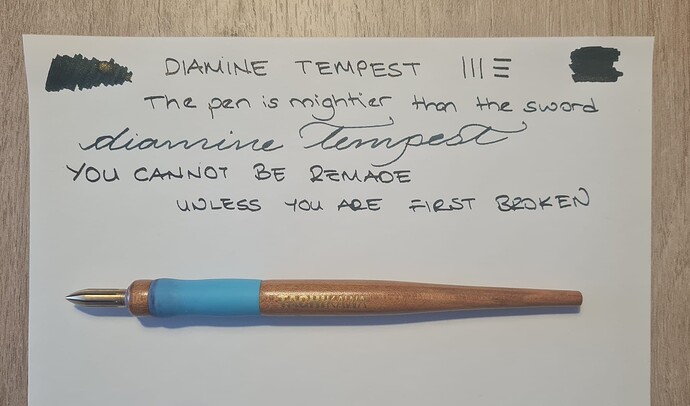 DIAMINE TEMPEST
The pen is mightier than the sword
diamine Tempest
YOU CANNOT BE REMADE
UNLESS YOU ARE FIRST BROKEN
TACHIKAWA